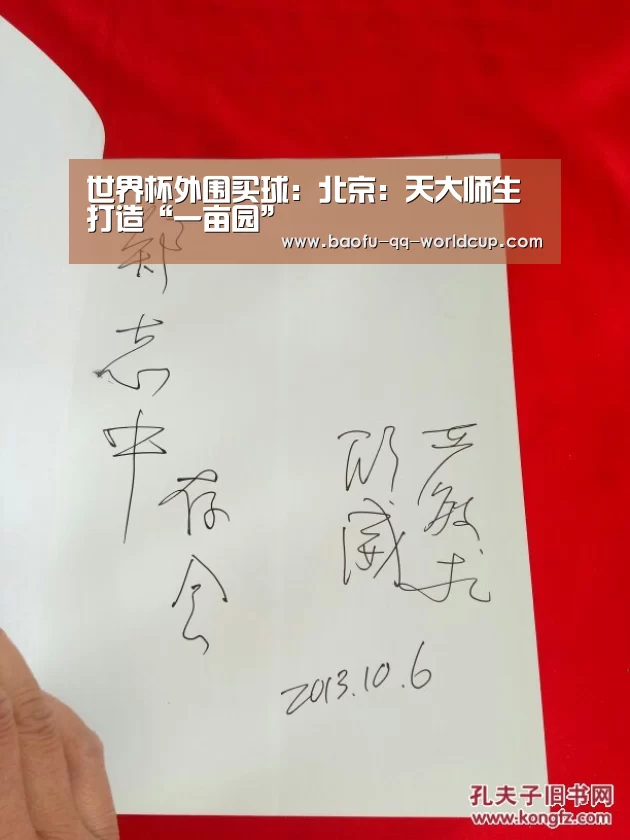 世界杯外围买球：北京：天大师生
打造“一亩园”
www.baofu-qq-worldcup.com
郑
志
中
存
念
2013.10.6
孔夫子旧书网
www.kongfz.com